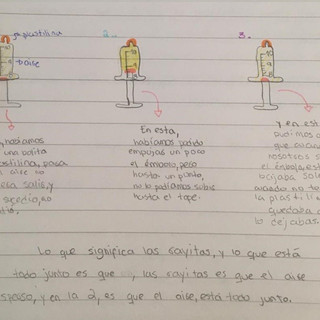 plastilina
2..
3.
aire
habíamos
una bolita
plastilina, para
aire no
salir, y
En esta,
habíamos podido
empujar un poco
el émbolo, pero
hasta un punto,
no lo podíamos subir
hasta el tope.
y en est
pudimos
que
nosotros s
el émbolo, est
cuando no t
la plastili
quedaba
lo dejabas.
Lo que significa las rayitas, y lo que está
todo junto es que ..., las rayitas es que el aire
y en la 2, es que el aire, está todo junto.